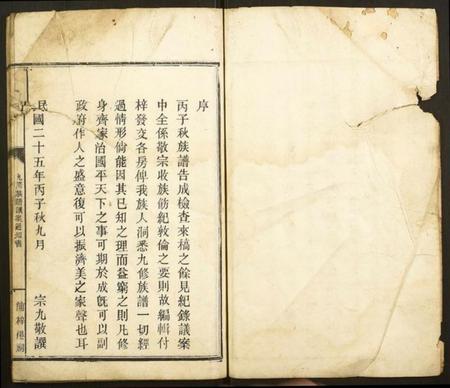 序
丙子秋族譜告成檢查來稿之餘見紀錄議案
中全係敬宗收族飭紀敦倫之要則故編輯付
梓發交各房俾我族人洞悉九修族譜一切經
過情形倘能因其已知之理而益窮之則凡修
身齊家治國平天下之事可期於成旣可以副
政府作人之盛意復可以振濟美之家聲也耳
民國二十五年丙子秋九月
宗九敬譔
九修族譜議案